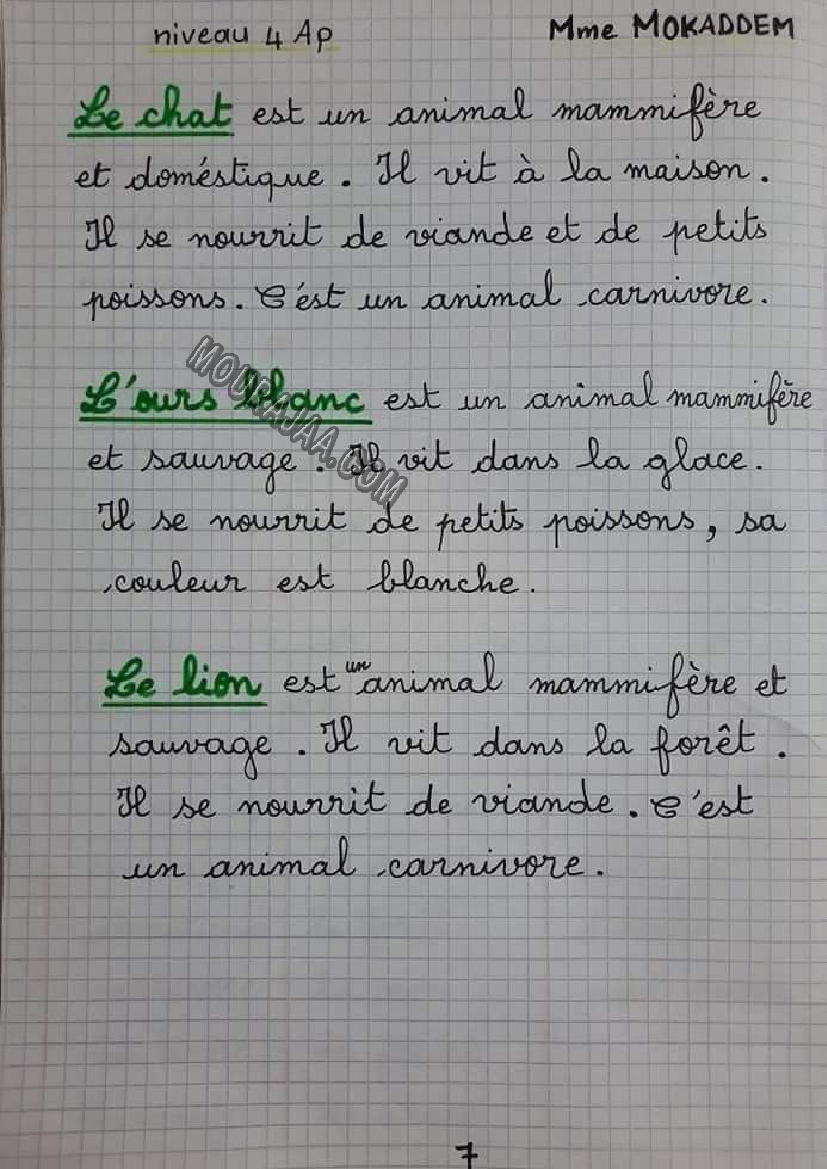 niveau 4 Ap
Mme MOKADDEM
Le chat est un animal mammifère
et doméstique. Il vit à la maison.
Il se nourrit de viande et de petits
poissons. C'ést un animal carnivore.
MOURAJAA.COM
L'ours blanc est un animal mammifère
et sauvage. Il vit dans la glace.
Il se nourrit de petits poissons, sa
couleur est blanche.
Le lion est un animal mammifère et
sauvage. Il vit dans la forêt.
Il se nourrit de viande. C'est
un animal carnivore.
7